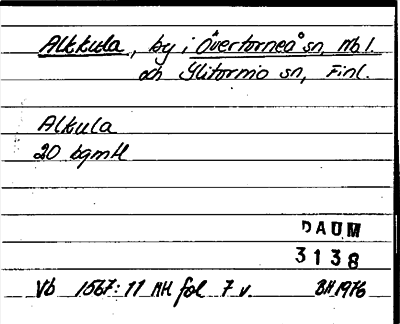 Alkkula, by i Övertorneå sn, Nbl.
och Ylitornio sn, Finl.
Alkula
20 bgmtl
DAUM
3138
Vb 1567:11 AH fol 7 v. BH 1976